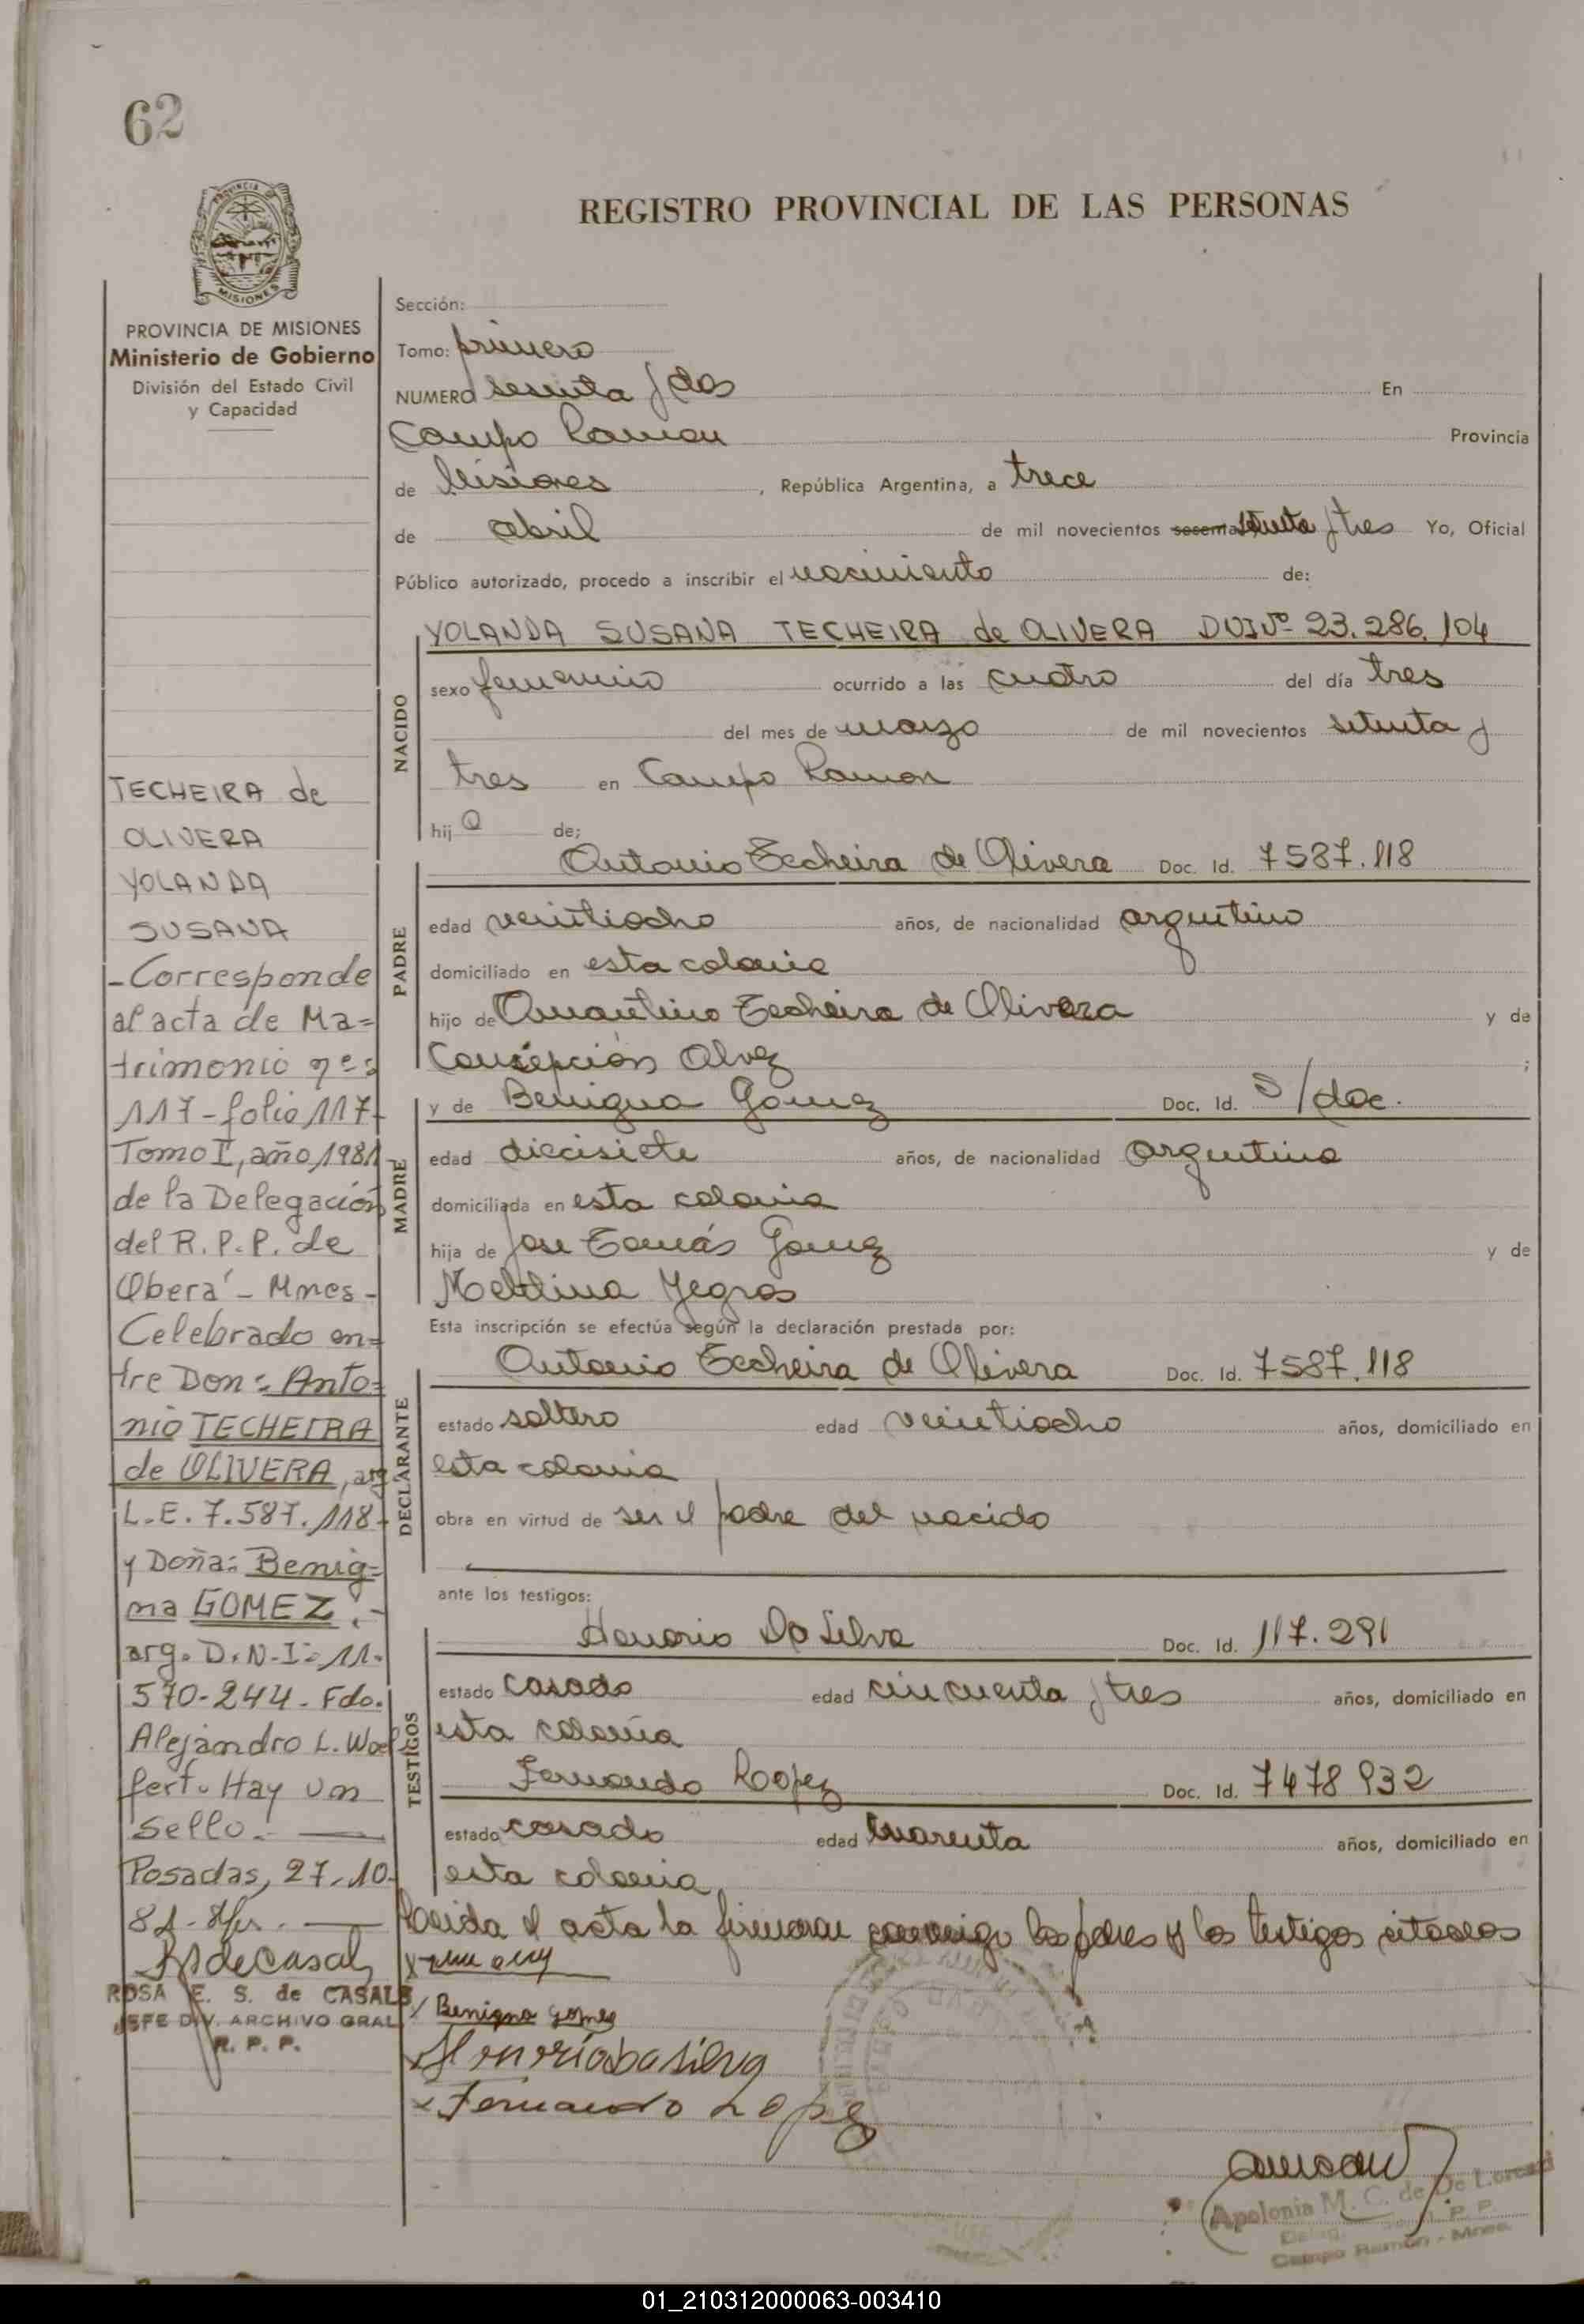 62
REGISTRO PROVINCIAL DE LAS PERSONAS
PROVINCIA DE
MISIONES
PROVINCIA DE MISIONES
Ministerio de Gobierno
División del Estado Civil
y Capacidad
TECHEIRA de
OLIVERA
YOLANDA
SUSANA
-Corresponde
al acta de Ma=
trimonio nº:
117-folio 117-
Tomo I, año 1981
de la Delegación
del R.P.P. de
Oberá - Mnes-
Celebrado en=
tre Don: Anto=
nio TECHEIRA
de OLIVERA, arg
L.E. 7.587.118-
y Doña: Benig=
na GOMEZ.-
arg. D.N.I: 11.
570-244- Fdo.
Alejandro L. Woel
fert. Hay un
sello.-
Posadas, 27-10-
81-
ROSA E. S. de CASALS
JEFE DIV. ARCHIVO GRAL
R. P. P.
Sección:
Tomo: primero
NUMERO sesenta y dos En
Campo Ramon Provincia
de Misiones, República Argentina, a trece
de abril de mil novecientos sesenta setenta y tres Yo, Oficial
Público autorizado, procedo a inscribir el nacimiento de:
NACIDO
YOLANDA SUSANA TECHEIRA de OLIVERA DNI Nº 23.286.104
sexo femenino ocurrido a las cuatro del día tres
del mes de marzo de mil novecientos setenta y
tres en Campo Ramon
hija de;
PADRE
Antonio Techeira de Olivera Doc. Id. 7587.118
edad veintiocho años, de nacionalidad argentino
domiciliado en esta colonia
hijo de Techeira de Olivera y de
Concepción Alvez ;
MADRE
y de Benigna Gomez Doc. Id. S/doc.
edad diecisiete años, de nacionalidad argentina
domiciliada en esta colonia
hija de Jose Tomás Gomez y de
Yegros
Esta inscripción se efectúa según la declaración prestada por:
DECLARANTE
Antonio Techeira de Olivera Doc. Id. 7587.118
estado soltero edad veintiocho años, domiciliado en
esta colonia
obra en virtud de ser el padre del nacido
ante los testigos:
TESTIGOS
Honorio Da Silva Doc. Id. 117.291
estado casado edad cincuenta y tres años, domiciliado en
esta colonia
Fernando Lopez Doc. Id. 7478932
estado casado edad cuarenta años, domiciliado en
esta colonia
Leida el acta la firmaran conmigo los padres y los testigos citados
Benigna gomes
Honorio da silva
x Fernando Lopez
Apolonia M. C. de De Lorenzi
R. P. P.
Campo Ramón - Mnes.
01_210312000063-003410